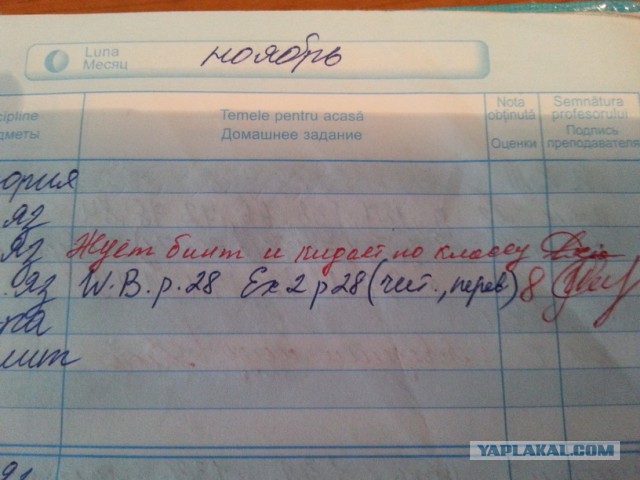 Luna
Месяц
ноябрь
cipline
дметы
Temele pentru acasă
Домашнее задание
Nota obţinută
Оценки
Semnătura profesorului
Подпись преподавателя
ория
яз
яз Жуёт бинт и кидает по классу
. яз W.B. p. 28 Ex 2 p 28 (чит., перев) 8
лит
YAPLAKAL.COM